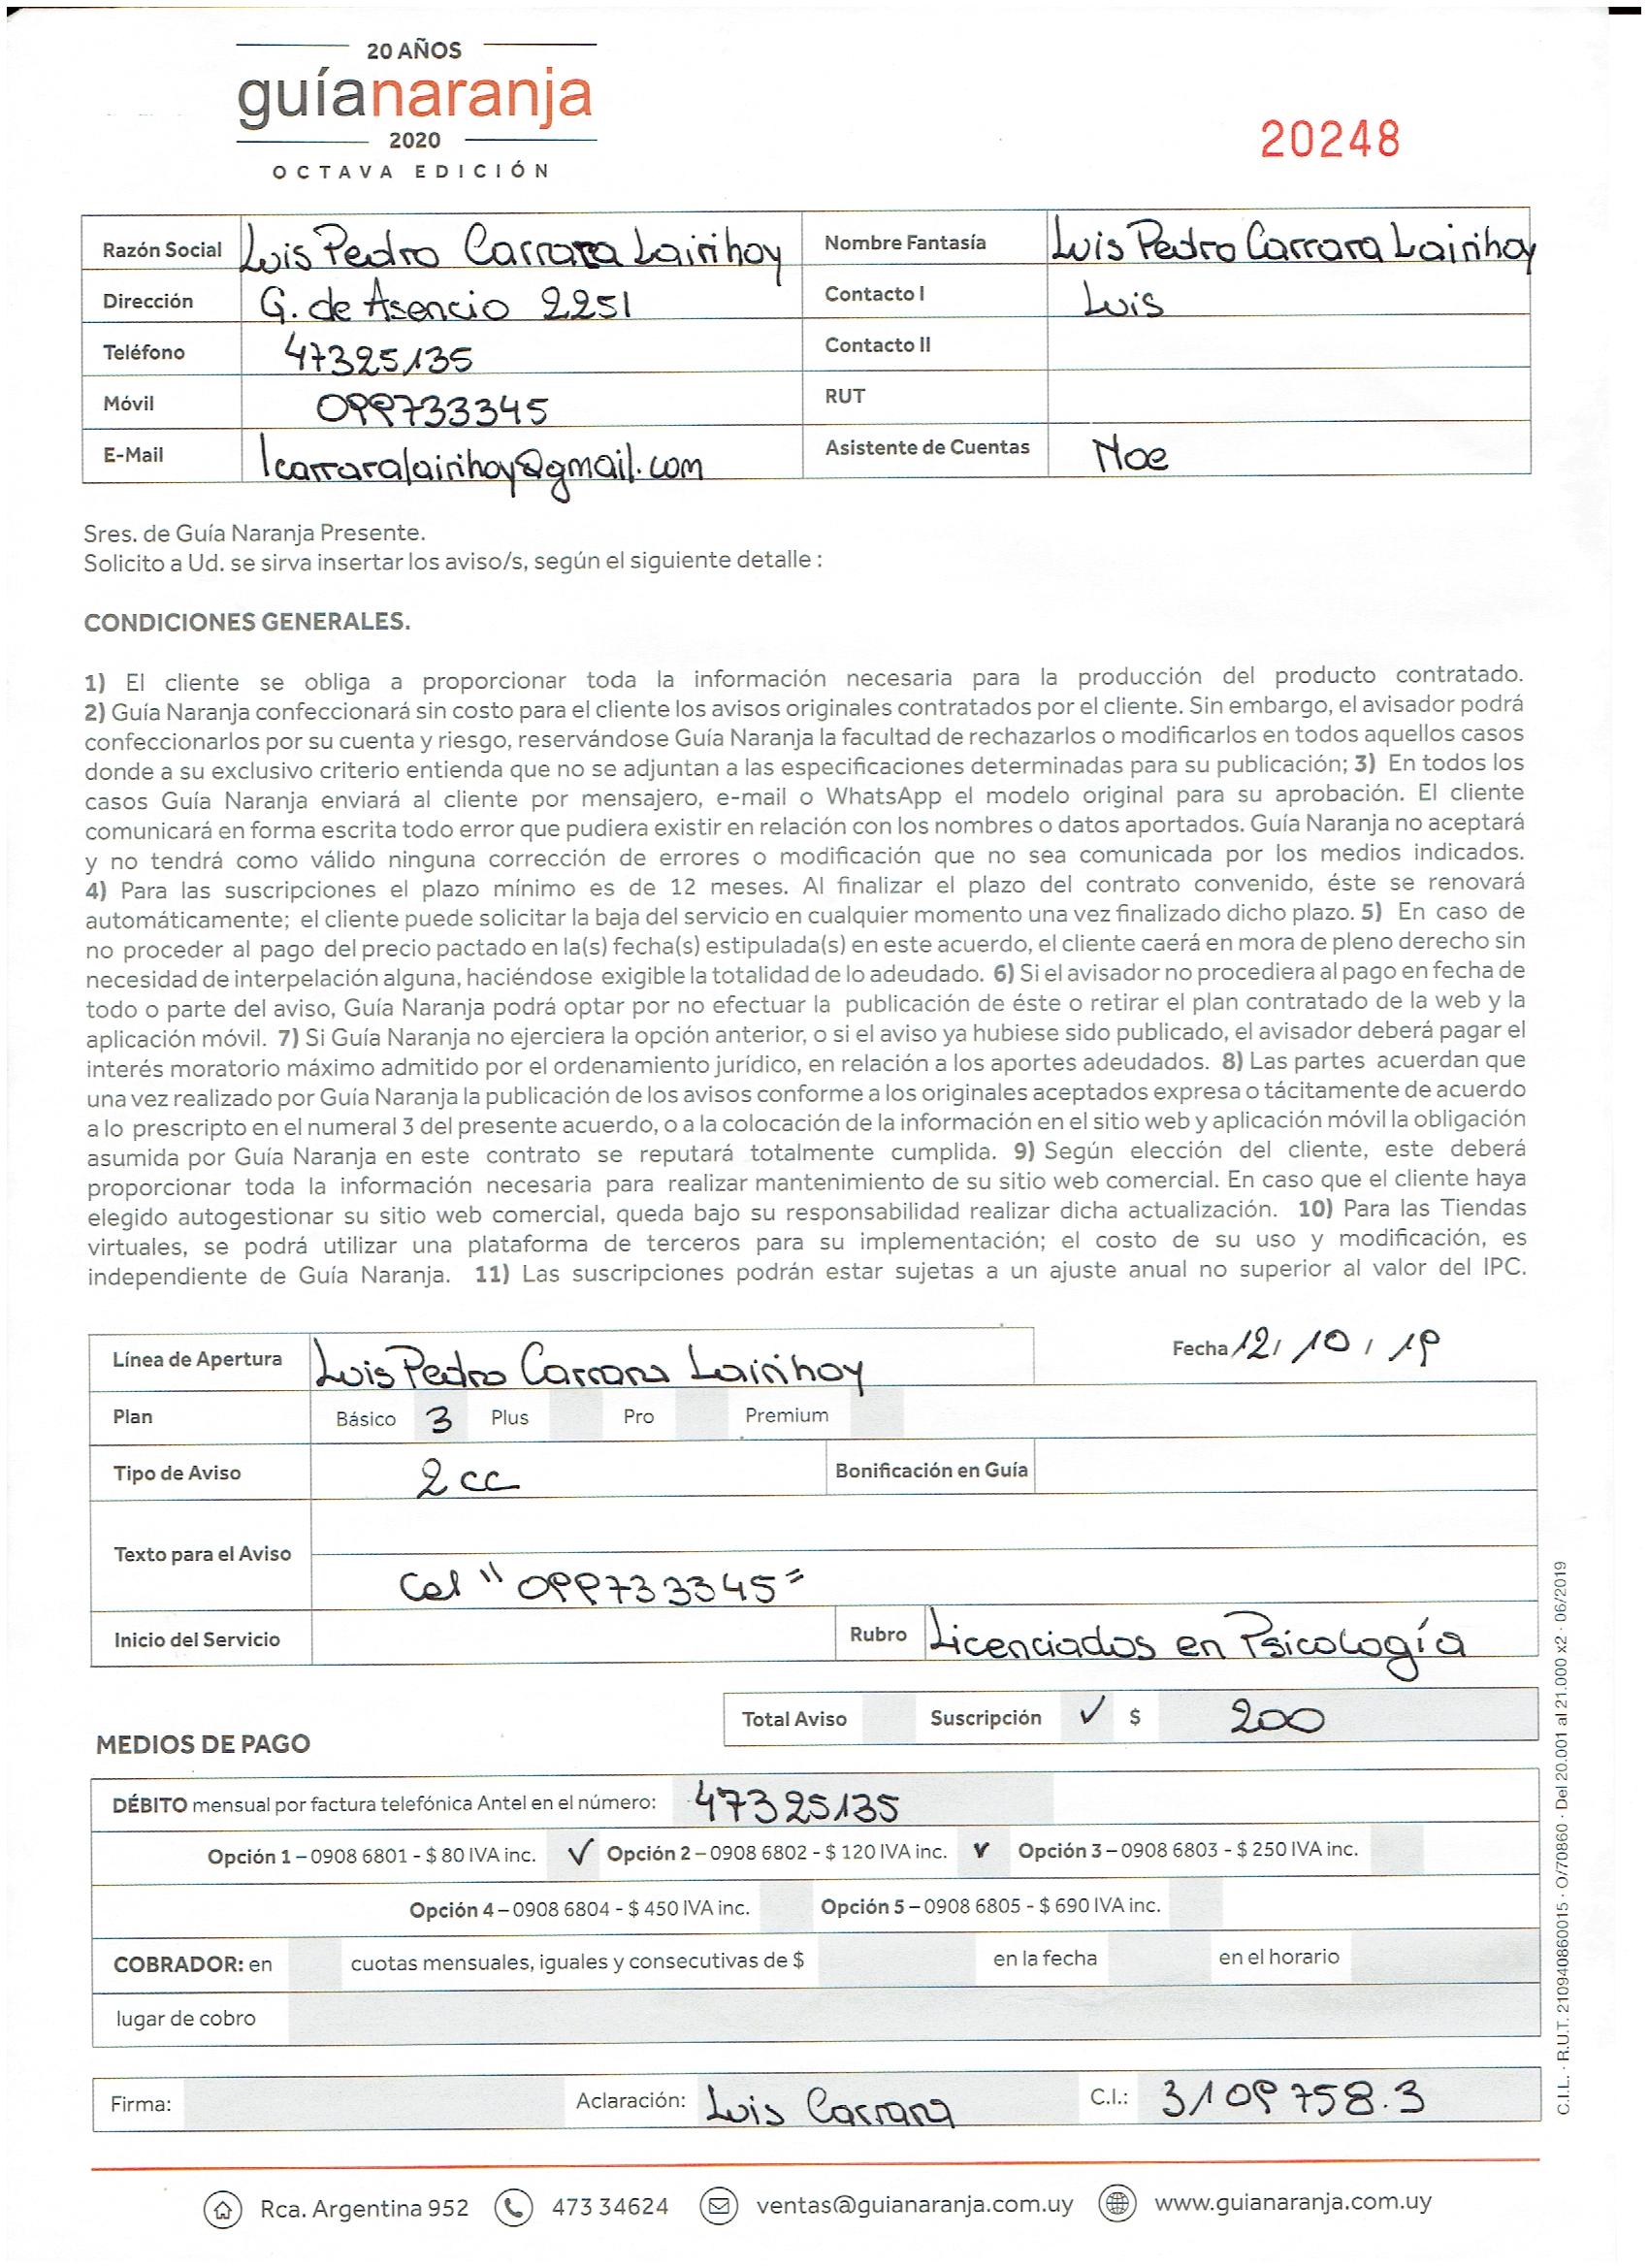 20 AÑOS
guíanaranja
2020
OCTAVA EDICIÓN
20248
Razón Social Luis Pedro Carrara Lairihoy Nombre Fantasía Luis Pedro Carrara Lairihoy
Dirección G. de Asencio 2251 Contacto I Luis
Teléfono 47325135 Contacto II
Móvil 099733345 RUT
E-Mail lcarraralairihoy@gmail.com Asistente de Cuentas Noe
Sres. de Guía Naranja Presente.
Solicito a Ud. se sirva insertar los aviso/s, según el siguiente detalle :
CONDICIONES GENERALES.
1) El cliente se obliga a proporcionar toda la información necesaria para la producción del producto contratado.
2) Guía Naranja confeccionará sin costo para el cliente los avisos originales contratados por el cliente. Sin embargo, el avisador podrá
confeccionarlos por su cuenta y riesgo, reservándose Guía Naranja la facultad de rechazarlos o modificarlos en todos aquellos casos
donde a su exclusivo criterio entienda que no se adjuntan a las especificaciones determinadas para su publicación; 3) En todos los
casos Guía Naranja enviará al cliente por mensajero, e-mail o WhatsApp el modelo original para su aprobación. El cliente
comunicará en forma escrita todo error que pudiera existir en relación con los nombres o datos aportados. Guía Naranja no aceptará
y no tendrá como válido ninguna corrección de errores o modificación que no sea comunicada por los medios indicados.
4) Para las suscripciones el plazo mínimo es de 12 meses. Al finalizar el plazo del contrato convenido, éste se renovará
automáticamente; el cliente puede solicitar la baja del servicio en cualquier momento una vez finalizado dicho plazo. 5) En caso de
no proceder al pago del precio pactado en la(s) fecha(s) estipulada(s) en este acuerdo, el cliente caerá en mora de pleno derecho sin
necesidad de interpelación alguna, haciéndose exigible la totalidad de lo adeudado. 6) Si el avisador no procediera al pago en fecha de
todo o parte del aviso, Guía Naranja podrá optar por no efectuar la publicación de éste o retirar el plan contratado de la web y la
aplicación móvil. 7) Si Guía Naranja no ejerciera la opción anterior, o si el aviso ya hubiese sido publicado, el avisador deberá pagar el
interés moratorio máximo admitido por el ordenamiento jurídico, en relación a los aportes adeudados. 8) Las partes acuerdan que
una vez realizado por Guía Naranja la publicación de los avisos conforme a los originales aceptados expresa o tácitamente de acuerdo
a lo prescripto en el numeral 3 del presente acuerdo, o a la colocación de la información en el sitio web y aplicación móvil la obligación
asumida por Guía Naranja en este contrato se reputará totalmente cumplida. 9) Según elección del cliente, este deberá
proporcionar toda la información necesaria para realizar mantenimiento de su sitio web comercial. En caso que el cliente haya
elegido autogestionar su sitio web comercial, queda bajo su responsabilidad realizar dicha actualización. 10) Para las Tiendas
virtuales, se podrá utilizar una plataforma de terceros para su implementación; el costo de su uso y modificación, es
independiente de Guía Naranja. 11) Las suscripciones podrán estar sujetas a un ajuste anual no superior al valor del IPC.
Línea de Apertura Luis Pedro Carrara Lairihoy Fecha 12/ 10 / 19
Plan Básico 3 Plus Pro Premium
Tipo de Aviso 2 cc Bonificación en Guía
Texto para el Aviso
Cel " 099733345 "
Inicio del Servicio Rubro Licenciados en Psicología
Total Aviso Suscripción ✓ $ 200
MEDIOS DE PAGO
DÉBITO mensual por factura telefónica Antel en el número: 47325135
Opción 1 – 0908 6801 - $ 80 IVA inc. ✓ Opción 2 – 0908 6802 - $ 120 IVA inc. ✓ Opción 3 – 0908 6803 - $ 250 IVA inc.
Opción 4 – 0908 6804 - $ 450 IVA inc. Opción 5 – 0908 6805 - $ 690 IVA inc.
COBRADOR: en cuotas mensuales, iguales y consecutivas de $ en la fecha en el horario
lugar de cobro
Firma: Aclaración: Luis Carrara C.I.: 3109758.3
Rca. Argentina 952 473 34624 ventas@guianaranja.com.uy www.guianaranja.com.uy
C.I.L. · R.U.T. 210940860015 · O/70860 · Del 20.001 al 21.000 x2 · 06/2019